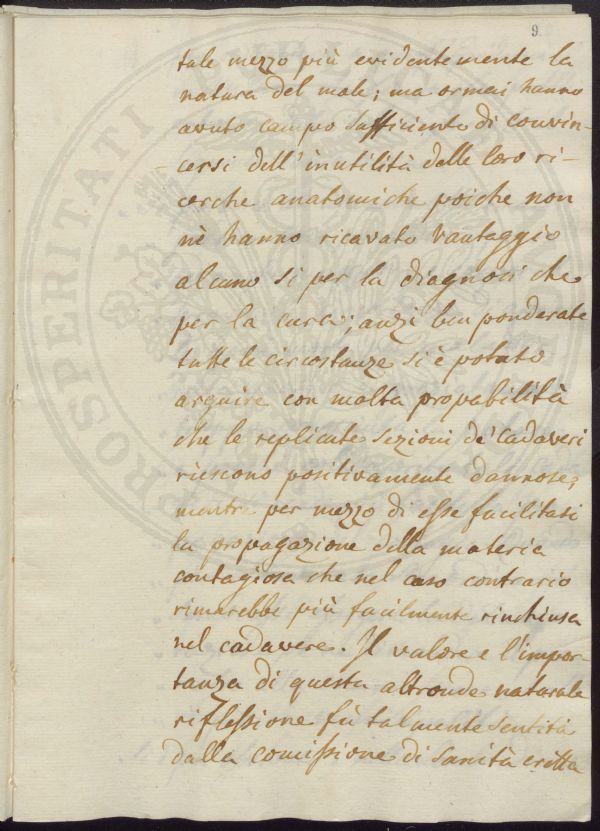 9
tale mezzo più evidentemente la
natura del male; ma ormai hanno
avuto campo sufficiente di convin-
cersi dell'inutilità delle loro ri-
cerche anatomiche poiche non
nè hanno ricavato vantaggio
alcuno si per la diagnosi che
per la cura; anzi ben ponderate
tutte le circostanze si è potuto
arguire con molta propabilità
che le replicate sezioni de' cadaveri
riescono positivamente dannose;
mentre per mezzo di esse facilitasi
la propagazione della materia
contagiosa che nel caso contrario
rimarebbe più facilmente rinchiusa
nel cadavere. Il valore e l'impor-
tanza di questa altronde naturale
riflessione fù talmente sentita
dalla comissione di sanità eretta
PROSPERITATI PUBLICAE